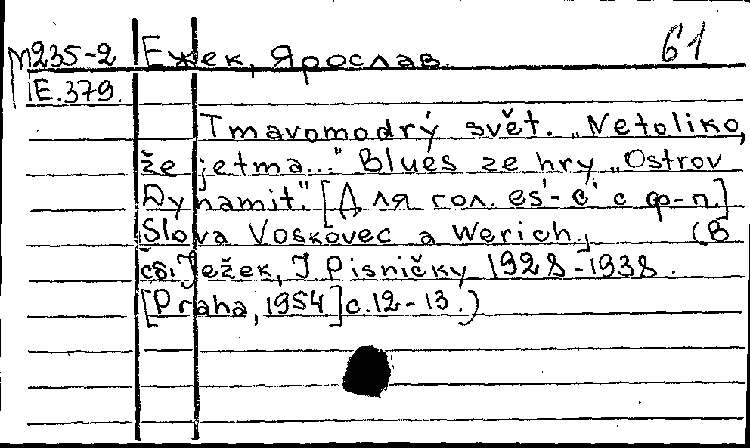 61
М235-2 Ежек, Ярослав.
Е.379.
Tmavomodrý svět. „Netoliko,
že jetma..." Blues ze hry „Ostrov
Dynamit." [Для гол. es'-c' с ф-п.]
Slova Voskovec a Werich, (В
сб: Ježek, J. Pisničky 1928-1938.
[Praha, 1954] с.12-13.)